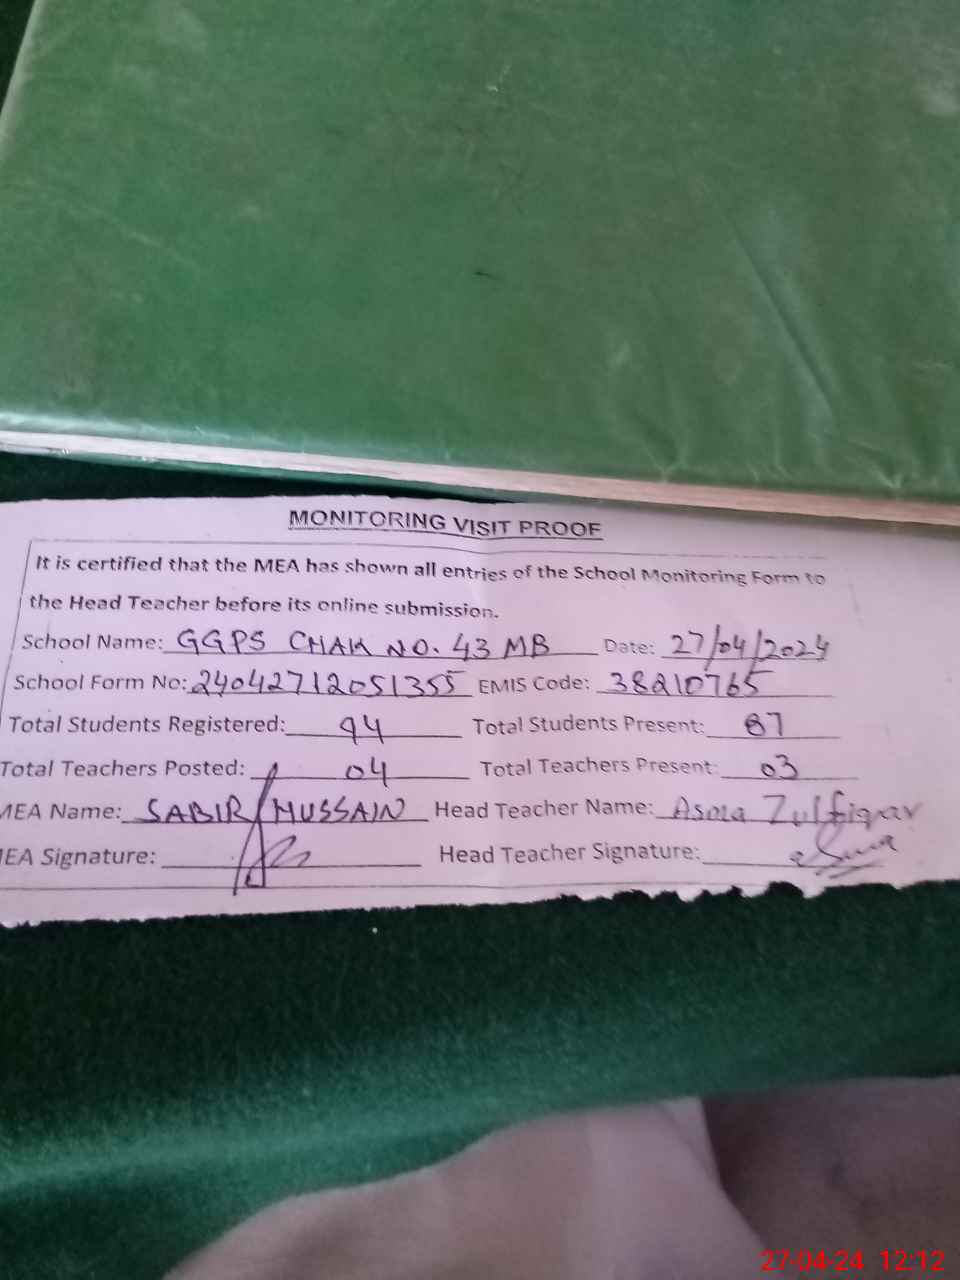 MONITORING VISIT PROOF
It is certified that the MEA has shown all entries of the School Monitoring Form to
the Head Teacher before its online submission.
School Name: GGPS CHAK NO. 43 MB Date: 27/04/2024
School Form No: 24042712051355 EMIS Code: 38210765
Total Students Registered: 94 Total Students Present: 87
Total Teachers Posted: 04 Total Teachers Present: 03
MEA Name: SABIR HUSSAIN Head Teacher Name: Asma Zulfiqar
MEA Signature: Head Teacher Signature:
27-04-24 12:12